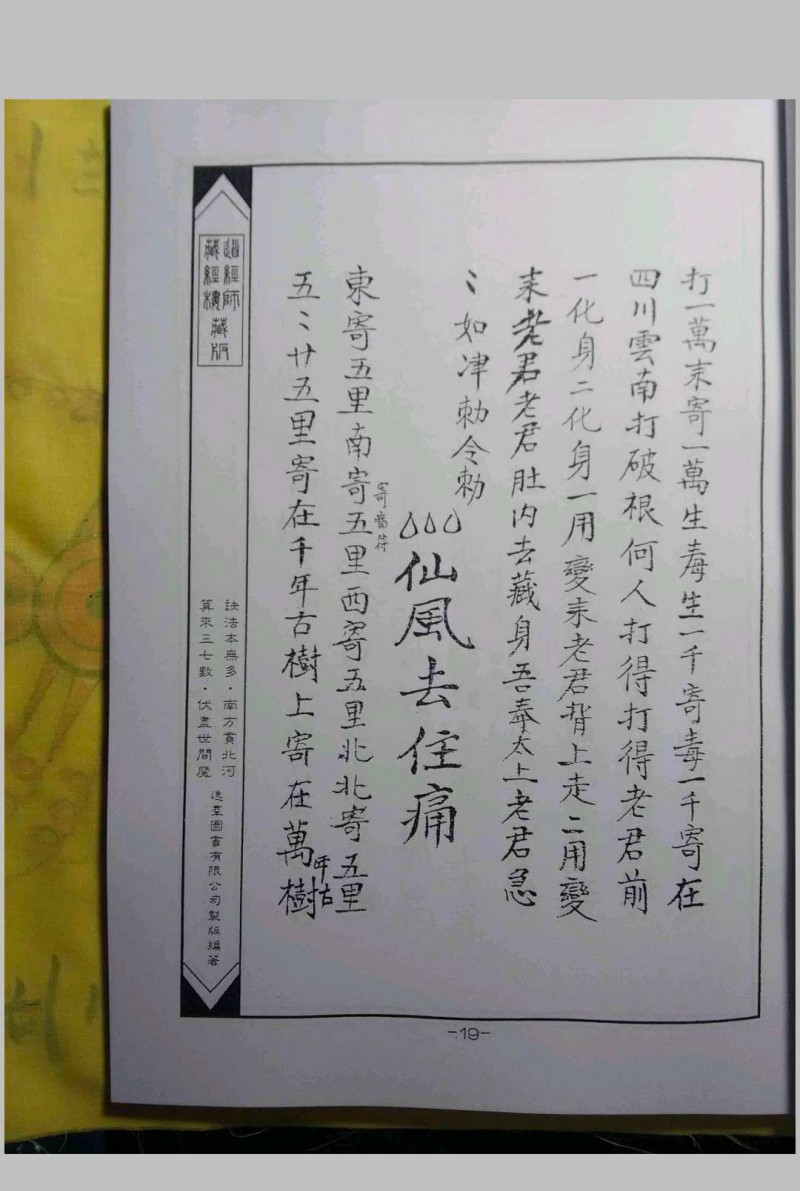 打一萬耒寄一萬生毒生一千寄毒一千寄在
四川雲南打破根何人打得打得老君前
一化身二化身一用變耒老君背上走二用變
耒老君老君肚内去藏身吾奉太上老君急
〻如津勅令勅
仙風去住痛
寄痛符
東寄五里南寄五里西寄五里北北寄五里
五〻廿五里寄在千年古樹上寄在萬年古樹
道經師
藏經樓藏版
訣法本無多·南方貫北河
算來三七數·伏盡世間魔
逸羣圖書有限公司製版編著
-19-